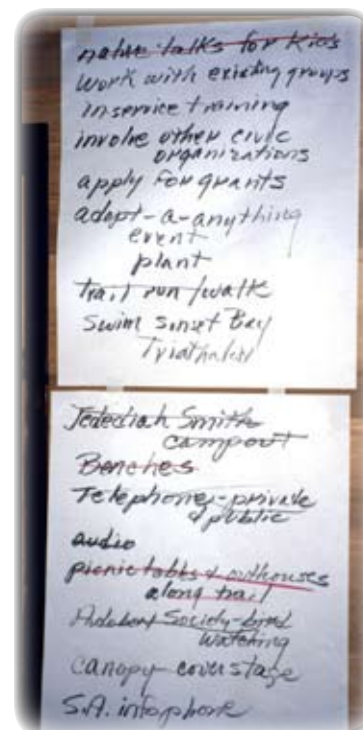 nature talks for Kids
work with existing groups
inservice training
involve other civic
organizations
apply for grants
adopt-a-anything
event
plant
trail run/walk
Swim Sunset Bay
Triathalon
Jedediah Smith
campout
Benches
Telephone-private
& public
audio
picnic tables & outhouses
along trail
Society-bird
watching
canopy cover stage
S.A. infophone